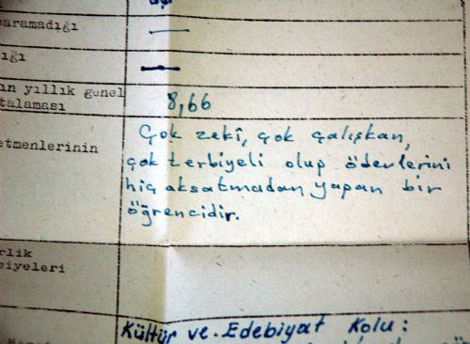 aramadığı —
ığı —
ın yıllık genel
talaması 8,66
etmenlerinin
Çok zekî, çok çalışkan,
çok terbiyeli olup ödevlerini
hiç aksatmadan yapan bir
öğrencidir.
rlik
iyeleri
Kültür ve Edebiyat Kolu: